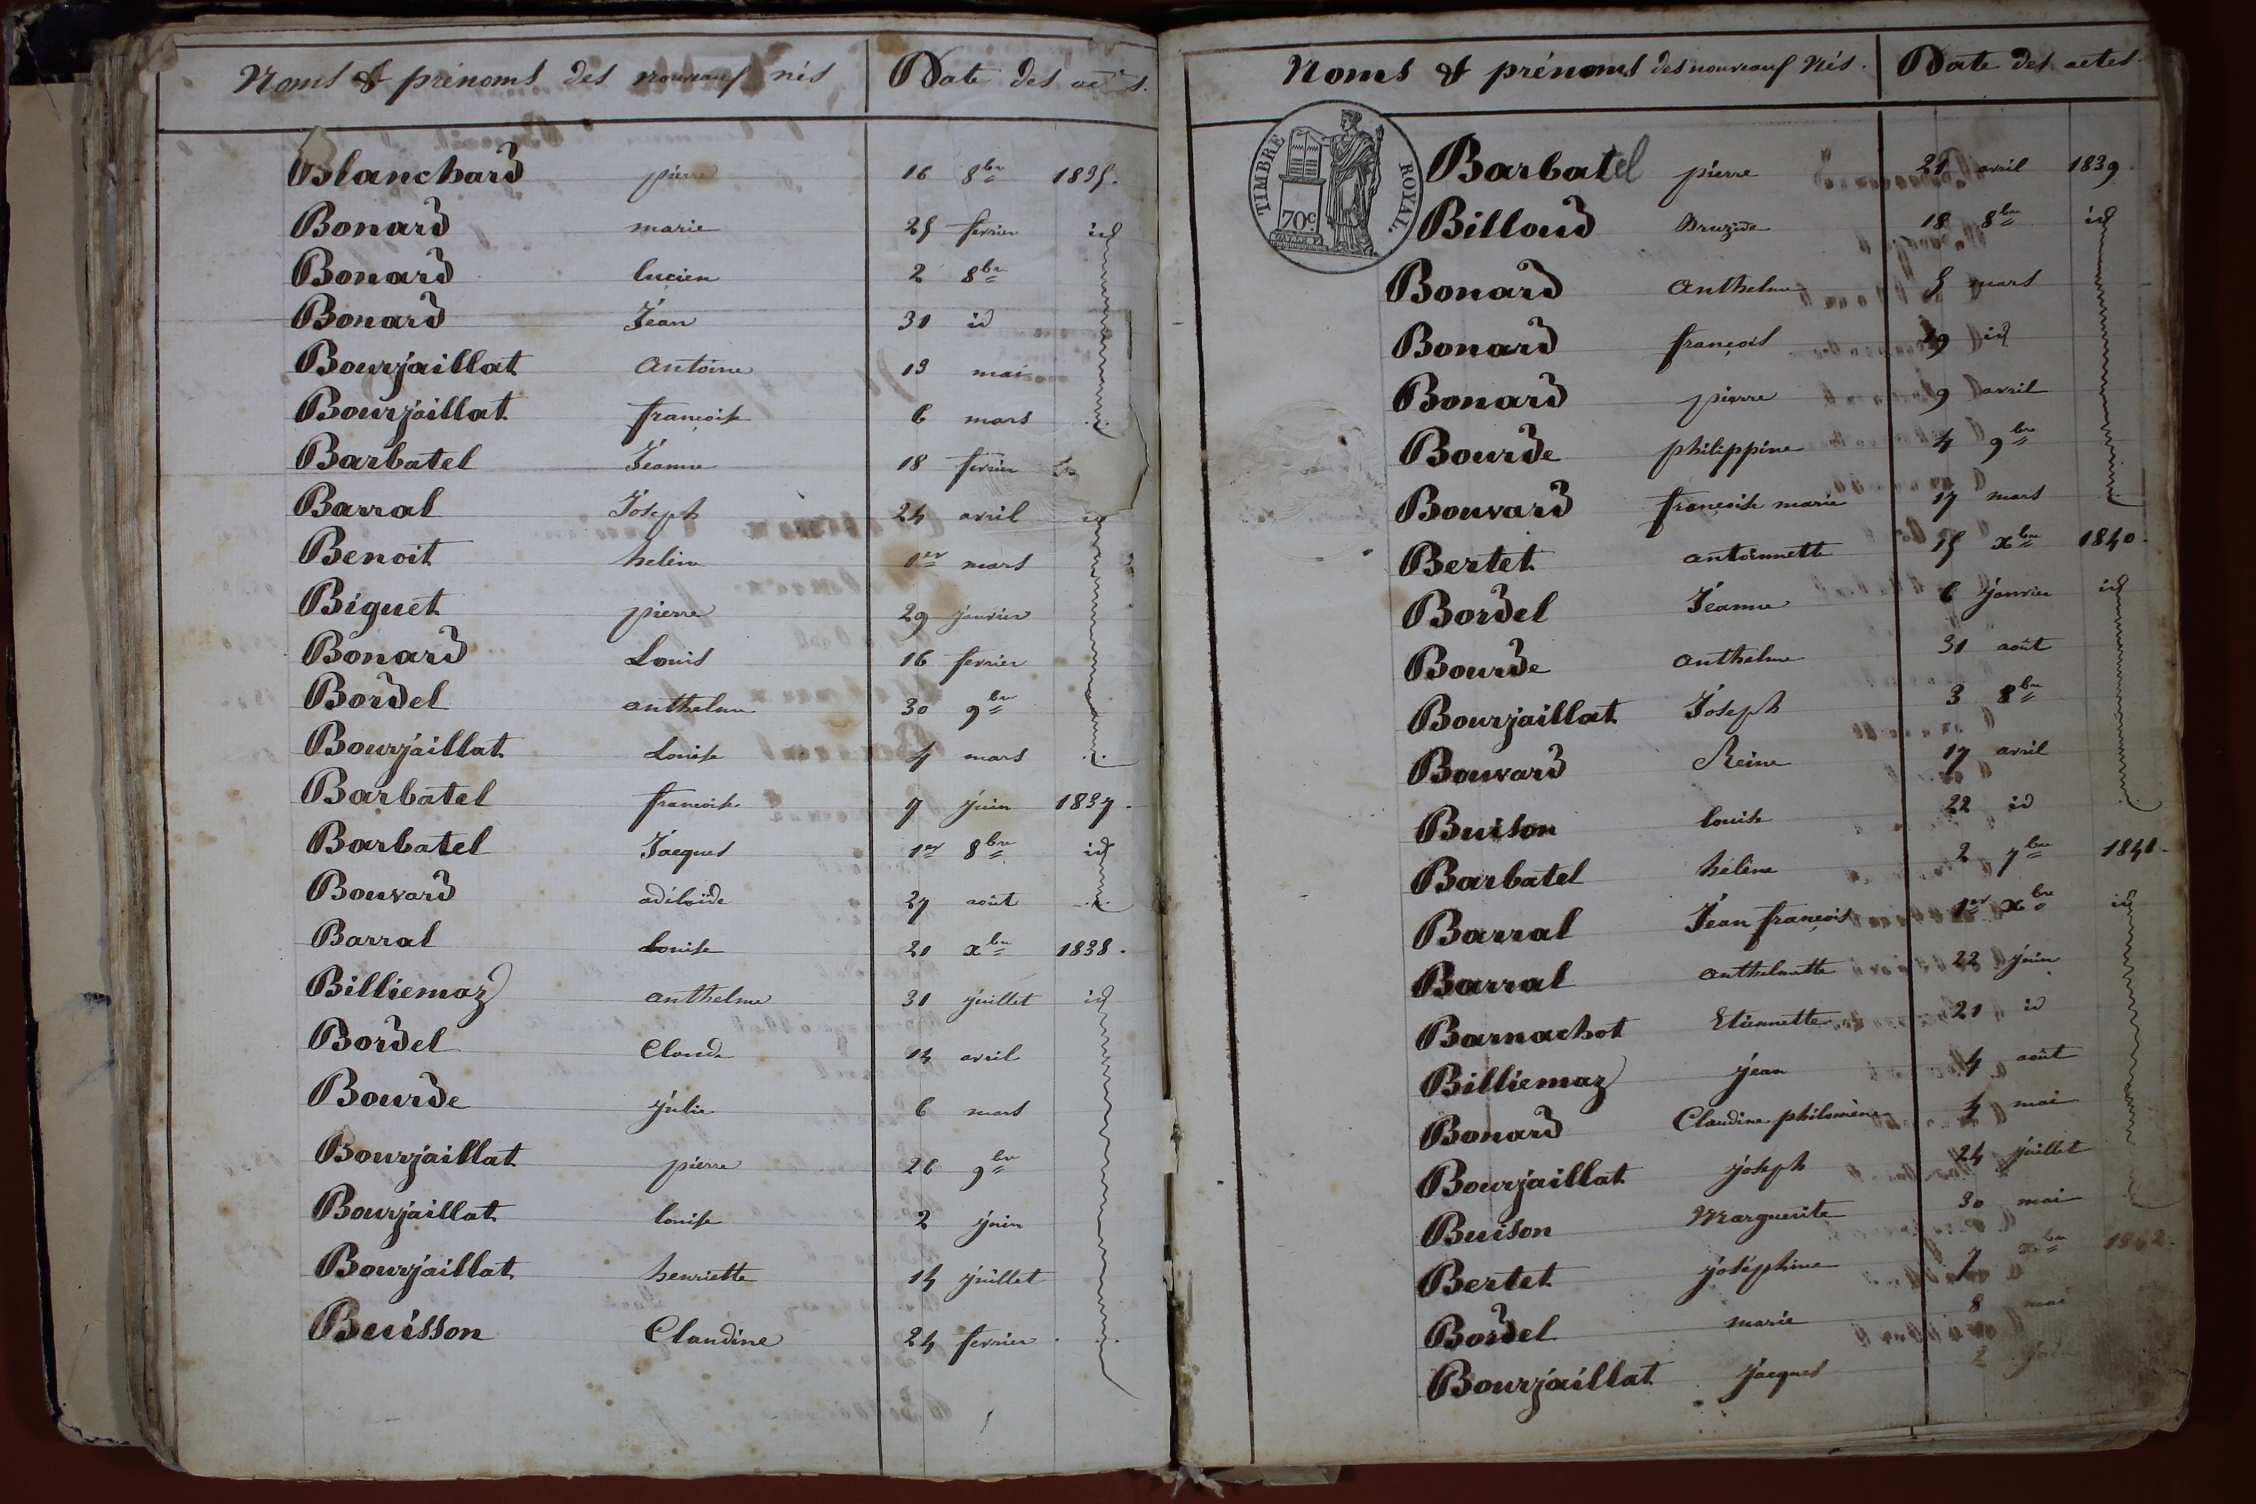 Noms & prénoms des nouveaux nés Date des actes.
Blanchard pierre 16 8bre 1835.
Bonard marie 25 fevrier id
Bonard lucien 2 8bre
Bonard Jean 31 id
Bourjaillat antoine 13 mai
Bourjaillat françoise 6 mars
Barbatel Jeanne 18 fevrier
Barral Joseph 24 avril id
Benoit helène 1er mars
Biguet pierre 29 janvier
Bonard Louis 16 fevrier
Bordel anthelme 30 9bre
Bourjaillat Louise 4 mars
Barbatel françoise 7 juin 1837.
Barbatel Jacques 1er 8bre id
Bouvard adélaïde 27 août
Barral Louise 21 xbre 1838.
Billiemaz anthelme 31 juillet id
Bordel Claude 14 avril
Bourde julie 6 mars
Bourjaillat pierre 26 9bre
Bourjaillat louise 2 juin
Bourjaillat henriette 14 juillet
Buisson Claudine 24 fevrier
Noms & prénoms des nouveaux nés. Date des actes.
TIMBRE ROYAL.
70c.
Barbatel pierre 21 avril 1839.
Billoud 18 8bre id
Bonard anthelme 5 mars
Bonard françois 19 id
Bonard pierre 9 avril
Bourde philippine 4 9bre
Bouvard françoise marie 17 mars
Bertet antoinnette 15 xbre 1840.
Bordel Jeanne 6 janvier id
Bourde anthelme 31 août
Bourjaillat Joseph 3 8bre
Bouvard Reine 17 avril
Buison louise 22 id
Barbatel hélène 2 7bre 1841.
Barral Jean françois 1er xbre id
Barral anthelmette 22 juin
Barnachot Etiennette 21 id
Billiemaz jean 4 août
Bonard Claudine philomène 4 mai
Bourjaillat joseph 24 juillet
Buison Marguerite 30 mai
Bertet joséphine 7 xbre 1842.
Bordel marie 8 mai
Bourjaillat jacques 2